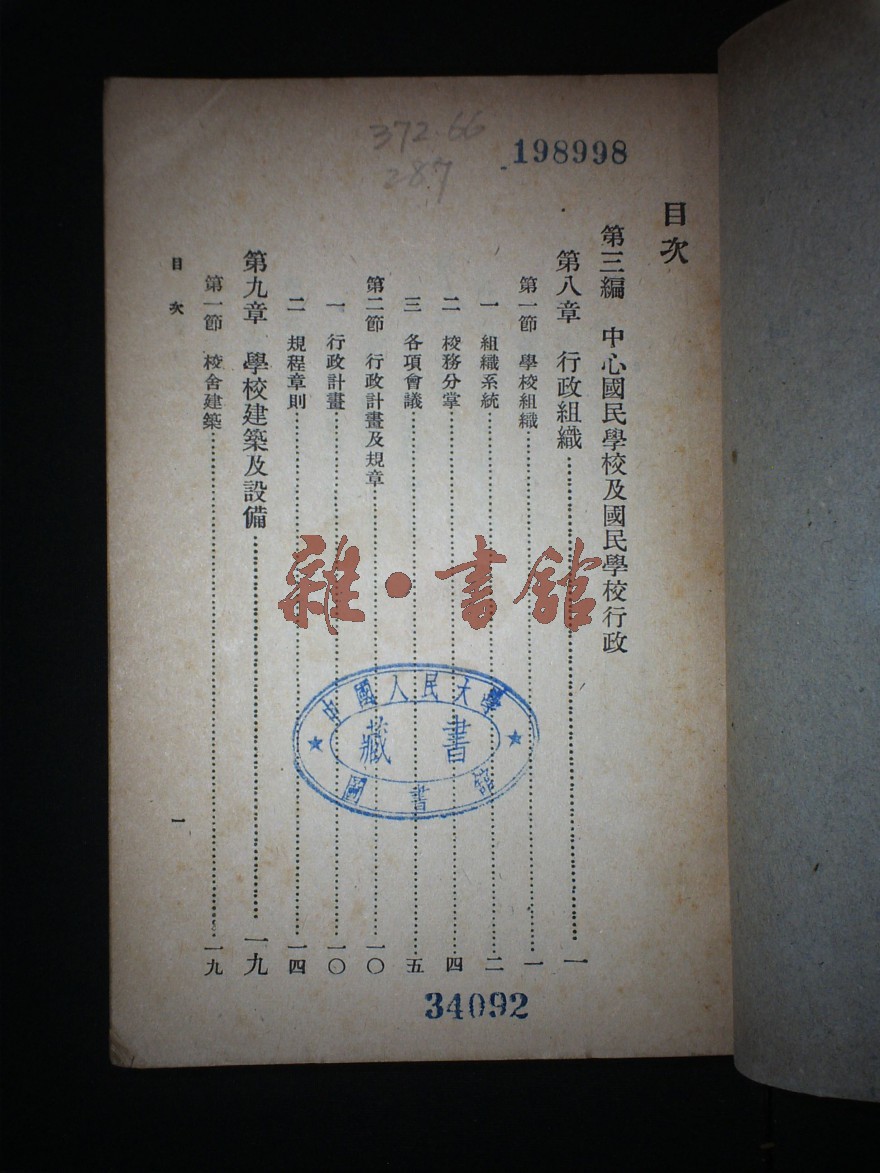 372.66
287
198998
目次
第三編 中心國民學校及國民學校行政
第八章 行政組織……一
第一節 學校組織……一
一 組織系統……二
二 校務分掌……四
三 各項會議……五
第二節 行政計畫及規章……一〇
一 行政計畫……一〇
二 規程章則……一四
第九章 學校建築及設備……一九
第一節 校舍建築……一九
目次 一
雜·書館
中國人民大學
藏書
圖書館
34092